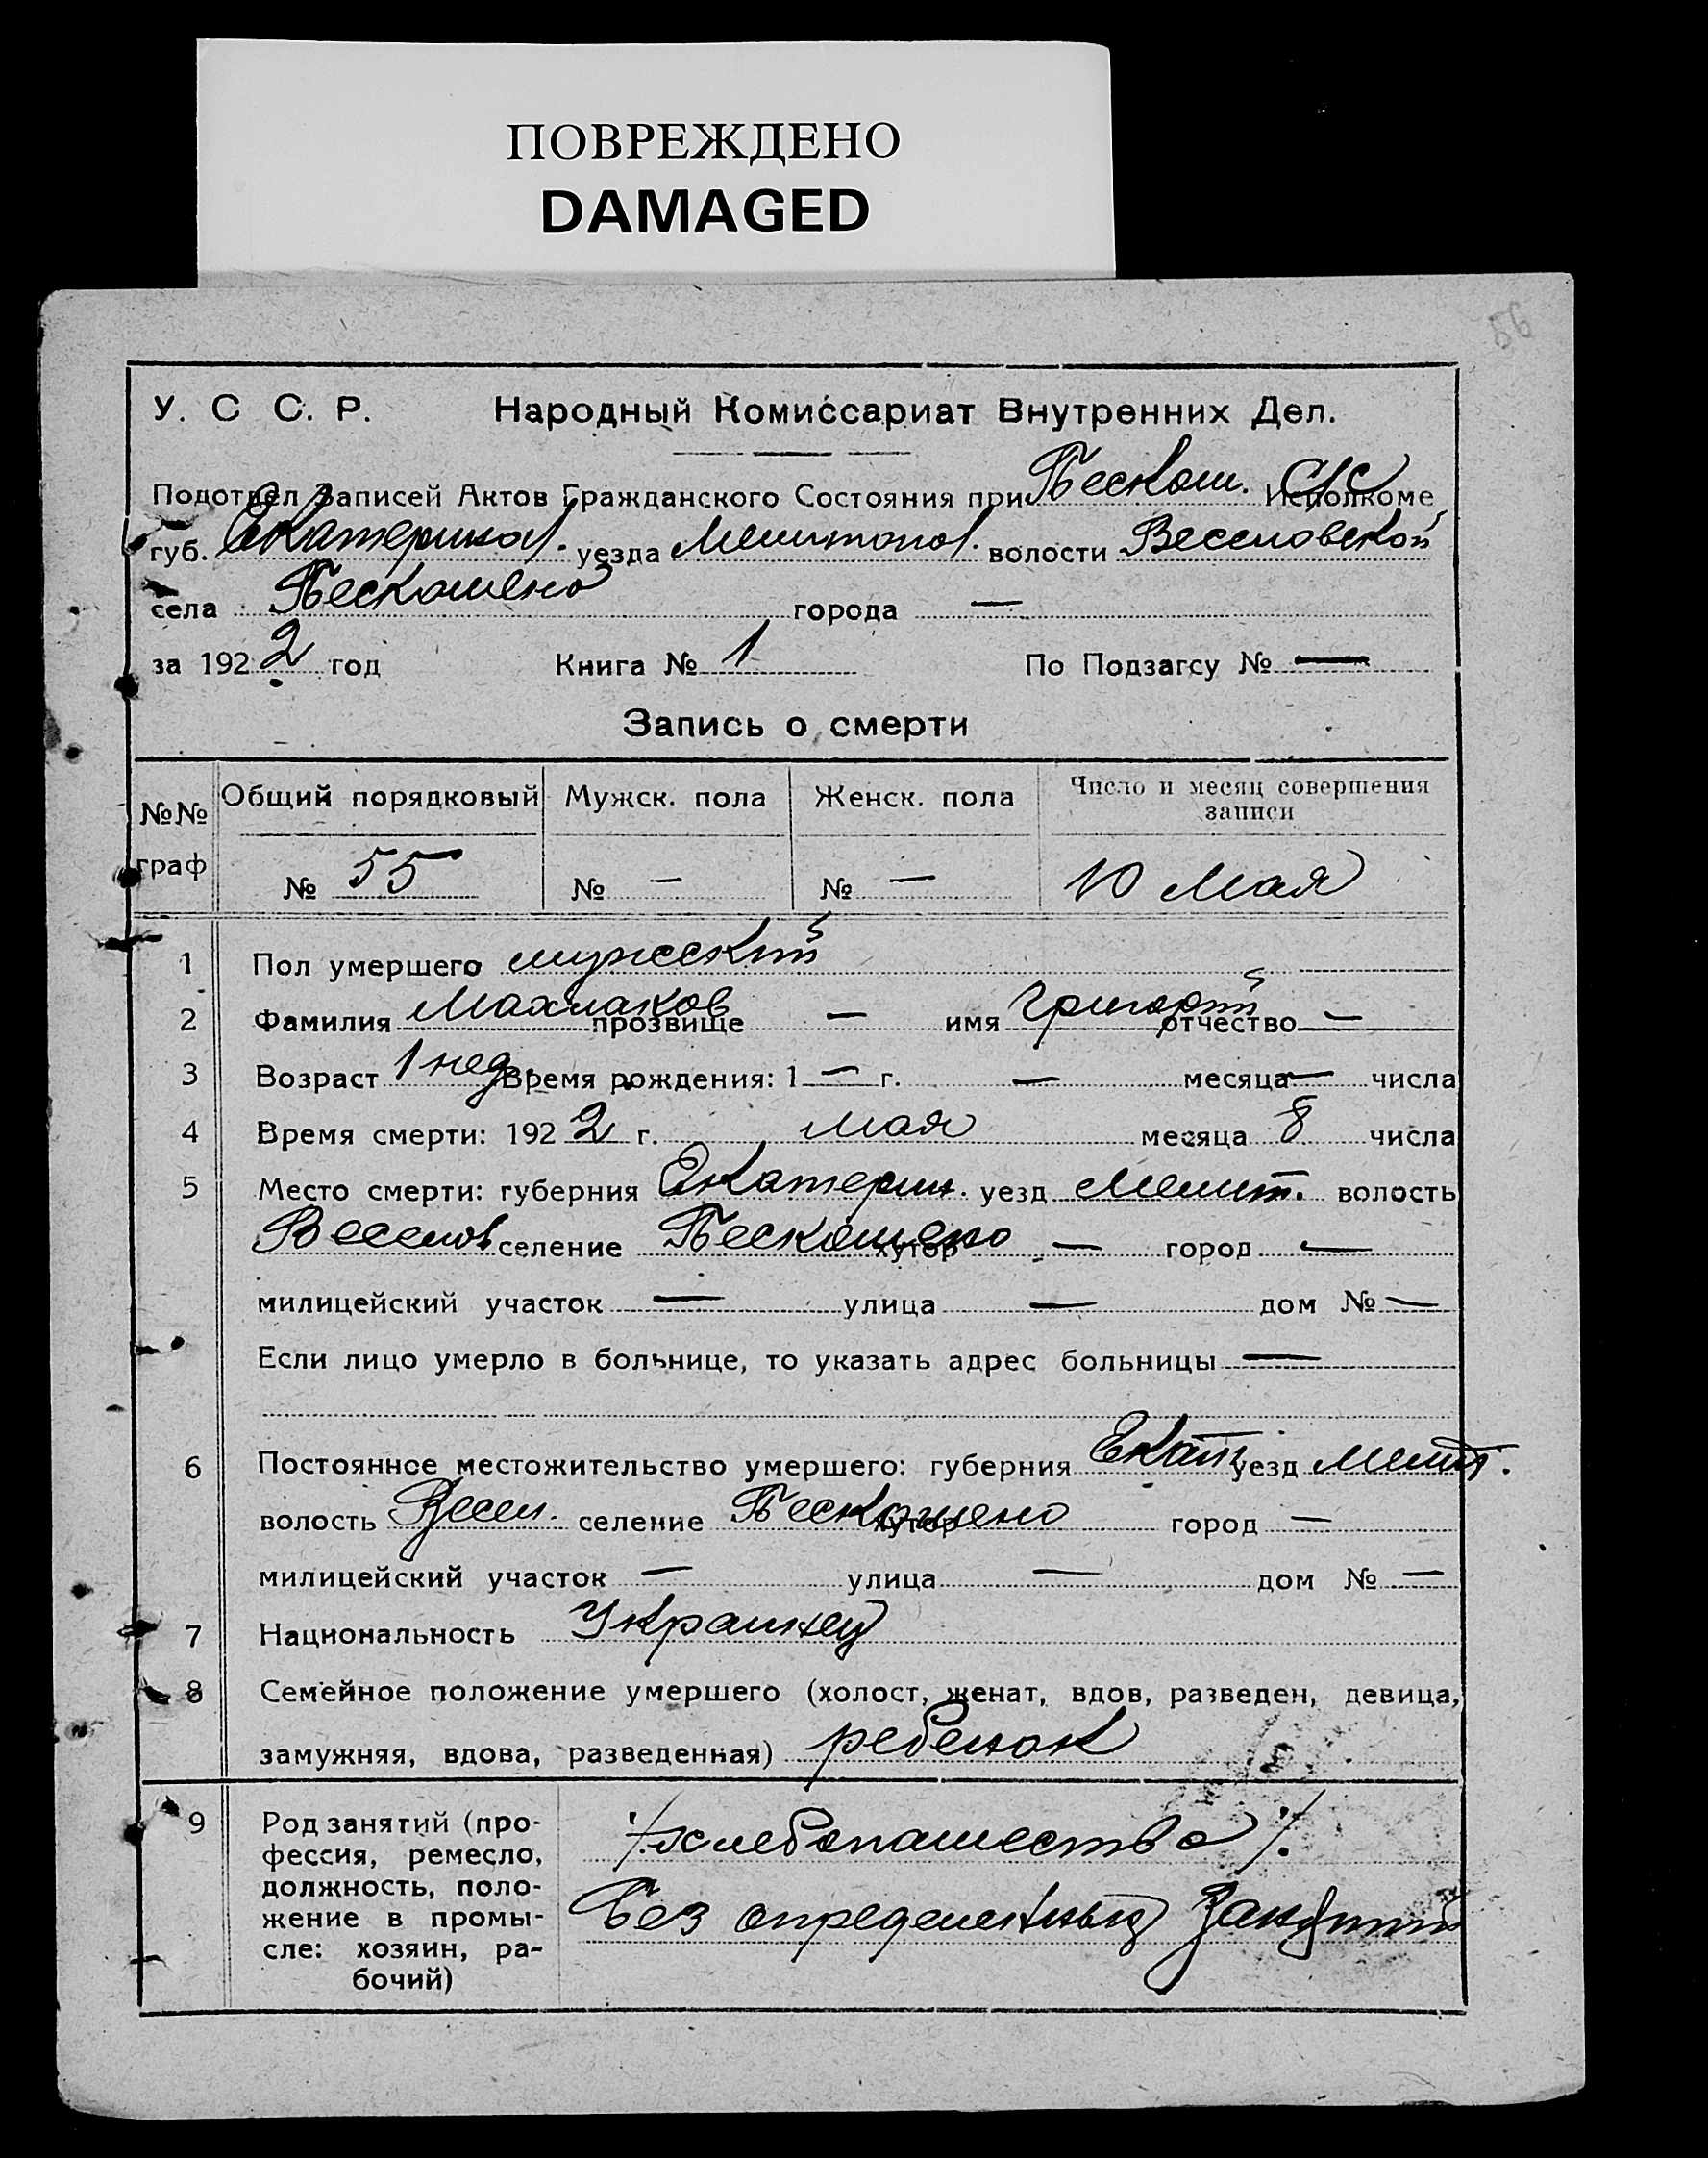 ПОВРЕЖДЕНО
DAMAGED
56
У. С С. Р. Народный Комиссариат Внутренних Дел.
Подотдел Записей Актов Гражданского Состояния при Бескош. С/С Исполкоме
губ. Екатериносл. уезда Мелитопол. волости Веселовской
села Бескошено города —
за 1922 год Книга № 1 По Подзагсу № —
Запись о смерти
№№ граф Общий порядковый Мужск. пола Женск. пола Число и месяц совершения записи
№ 55 № — № — 10 Мая
1 Пол умершего мужеский
2 Фамилия Махлаков прозвище — имя Григорий отчество —
3 Возраст 1 нед. Время рождения: 1 — г. — месяца — числа
4 Время смерти: 1922 г. мая месяца 8 числа
5 Место смерти: губерния Екатерин. уезд Мелит. волость
Веселов селение Бескошено хутор — город —
милицейский участок — улица — дом № —
Если лицо умерло в больнице, то указать адрес больницы —
6 Постоянное местожительство умершего: губерния Екат уезд Мелит.
волость Весел. селение Бескошено хутор город —
милицейский участок — улица — дом № —
7 Национальность Украинец
8 Семейное положение умершего (холост, женат, вдов, разведен, девица,
замужняя, вдова, разведенная) ребенок
9 Род занятий (про-
фессия, ремесло,
должность, поло-
жение в промы-
сле: хозяин, ра-
бочий)
хлебопашество
Без определенных занятий